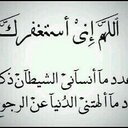 اللهم إني أستغفرك
عدد ما أنساني الشيطان ذك
د ما ألهتني الدنيا عن الرجو